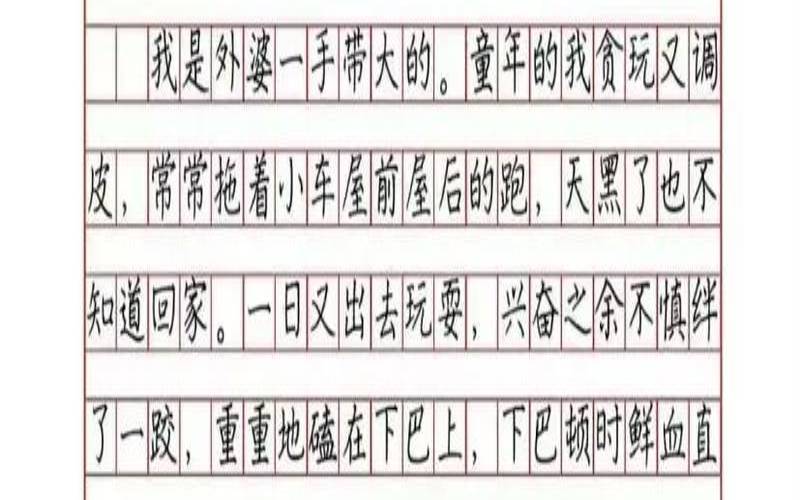 我是外婆一手带大的。童年的我贪玩又调
皮，常常拖着小车屋前屋后的跑，天黑了也不
知道回家。一日又出去玩耍，兴奋之余不慎绊
了一跤，重重地磕在下巴上，下巴顿时鲜血直